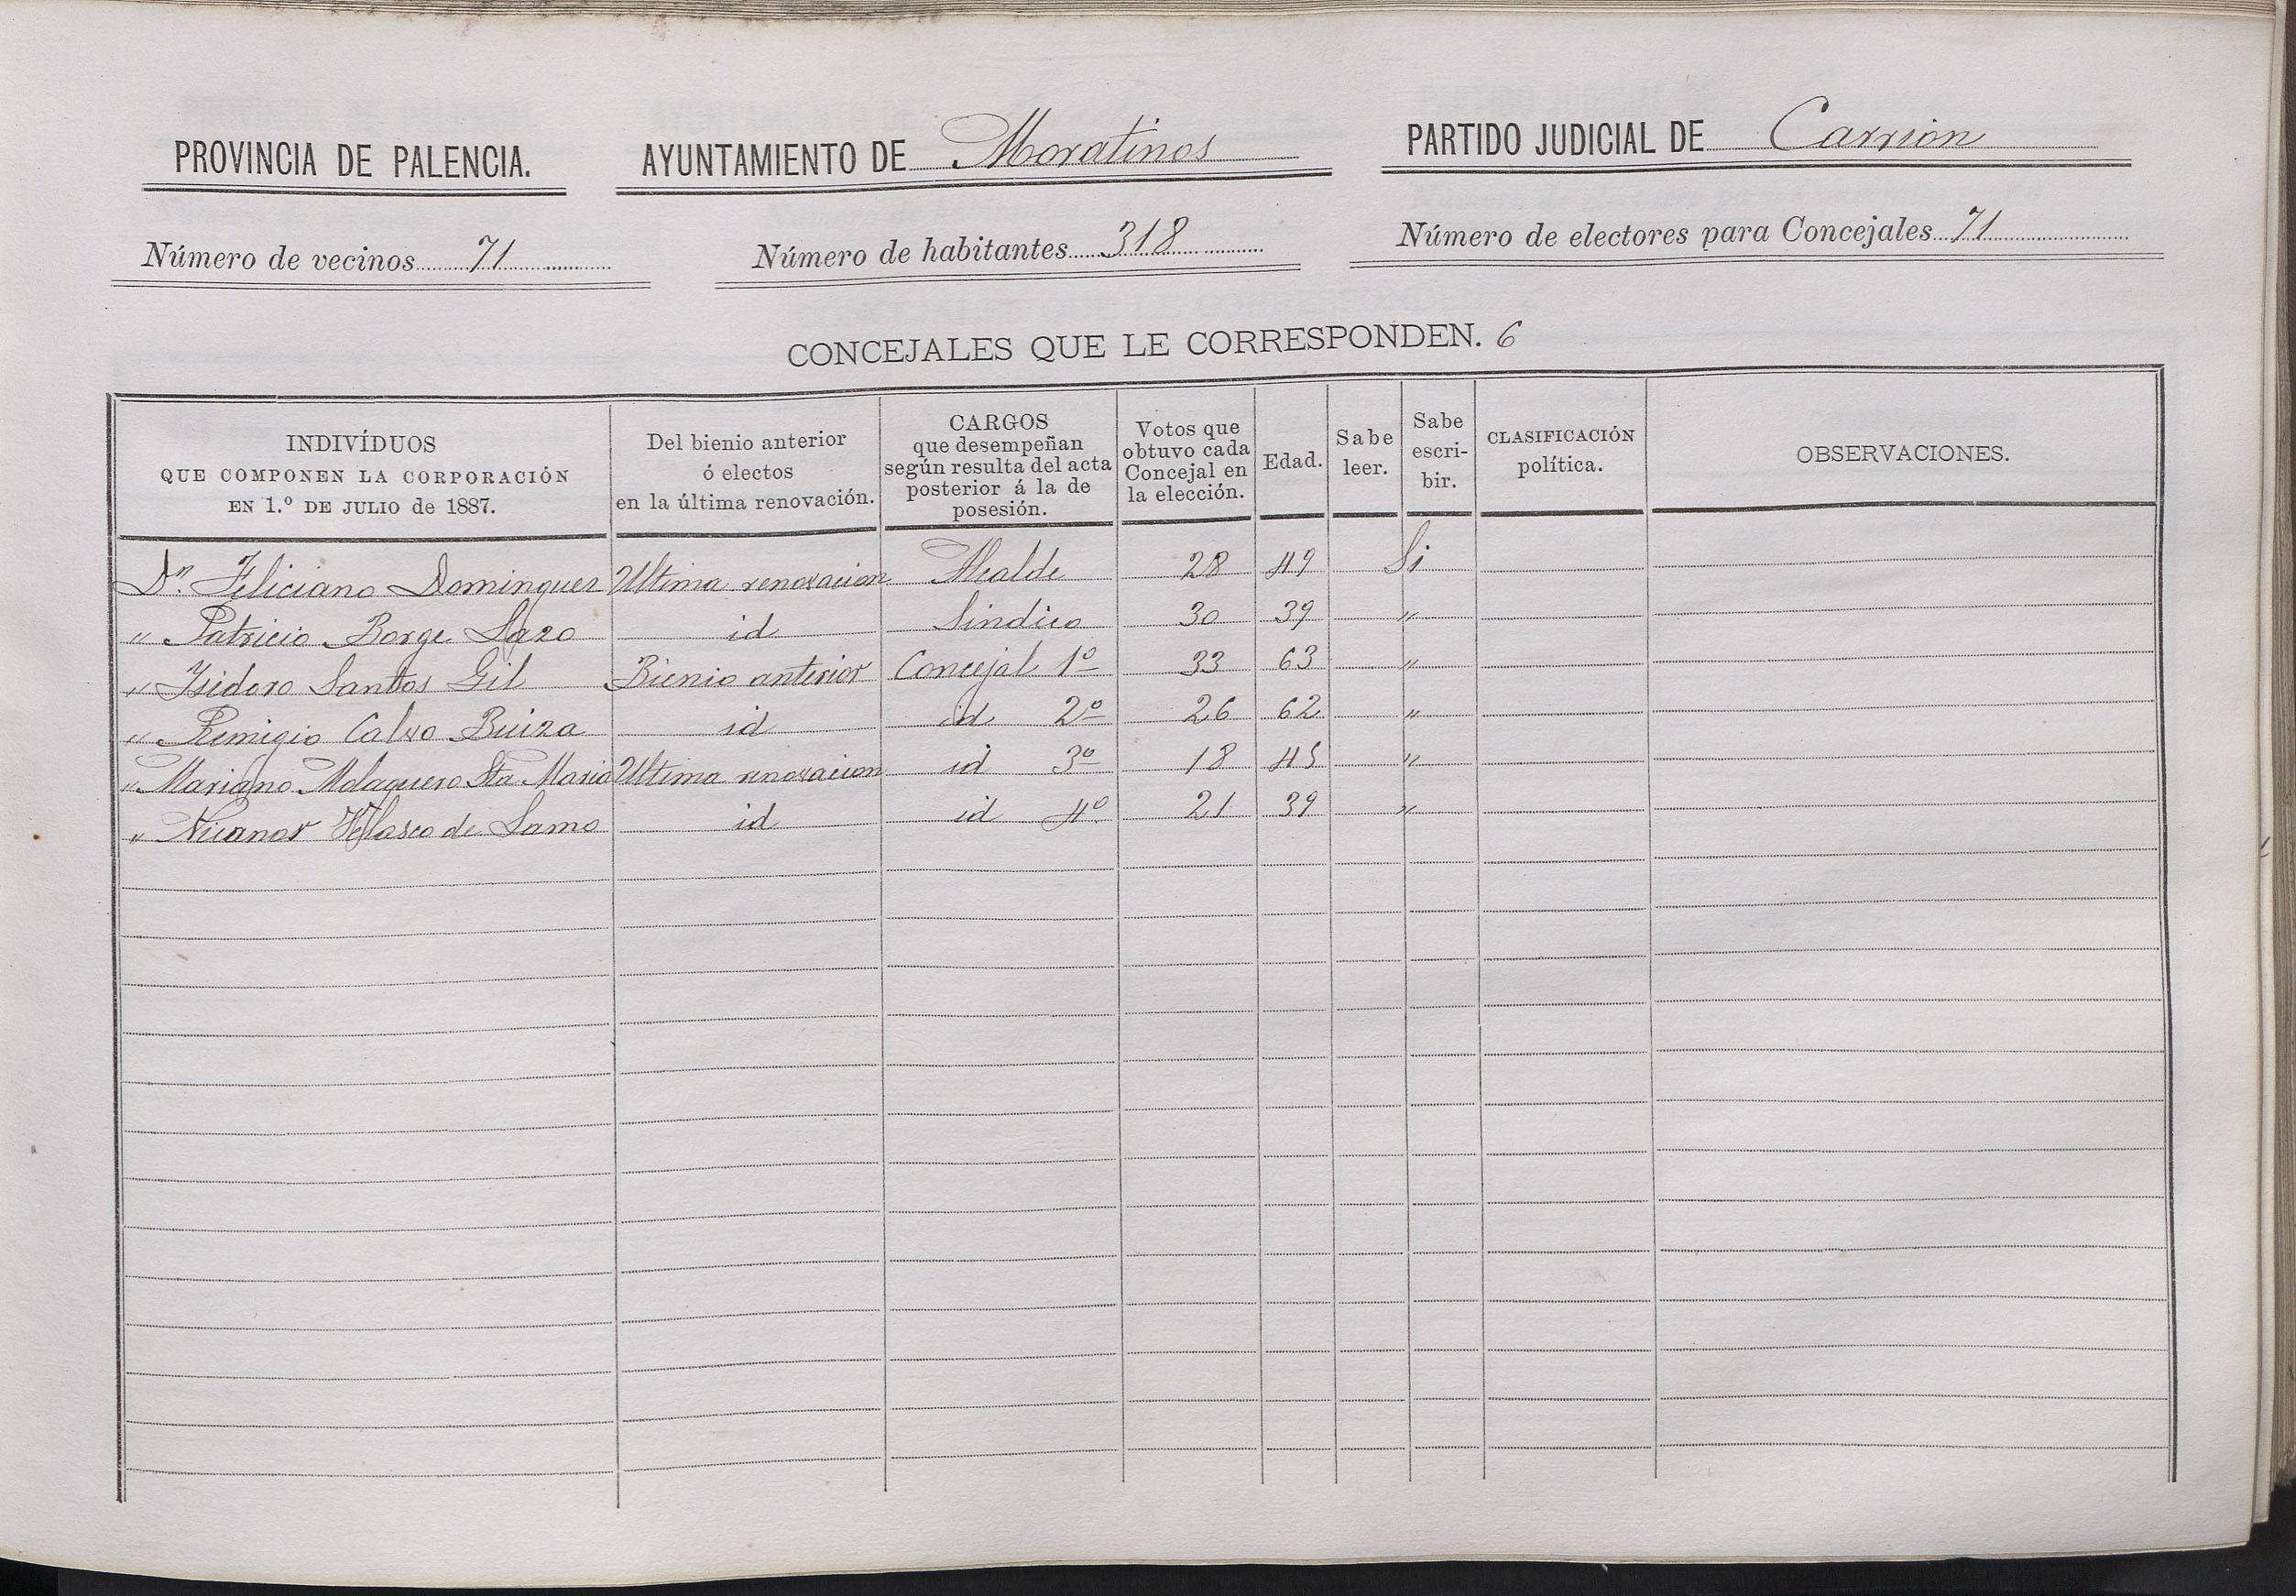 PROVINCIA DE PALENCIA. AYUNTAMIENTO DE Moratinos PARTIDO JUDICIAL DE Carrion
Número de vecinos 71 Número de habitantes 318 Número de electores para Concejales 71
CONCEJALES QUE LE CORRESPONDEN. 6
INDIVÍDUOS
QUE COMPONEN LA CORPORACIÓN
EN 1.º DE JULIO de 1887.
Del bienio anterior
ó electos
en la última renovación.
CARGOS
que desempeñan
según resulta del acta
posterior á la de
posesión.
Votos que
obtuvo cada
Concejal en
la elección.
Edad.
Sabe
leer.
Sabe
escri-
bir.
CLASIFICACIÓN
política.
OBSERVACIONES.
Dn. Feliciano Dominguez Ultima renovacion Alcalde 28 49 Si
" Patricio Borge Lazo id Sindico 30 39 "
" Isidoro Santos Gil Bienio anterior Concejal 1º 33 63 "
" Remigio Calvo Buiza id id 2º 26 62 "
" Mariano Molaguero Sta Maria Ultima renovacion id 3º 18 45 "
" Nicanor Velasco de Lamo id id 4º 21 39 "